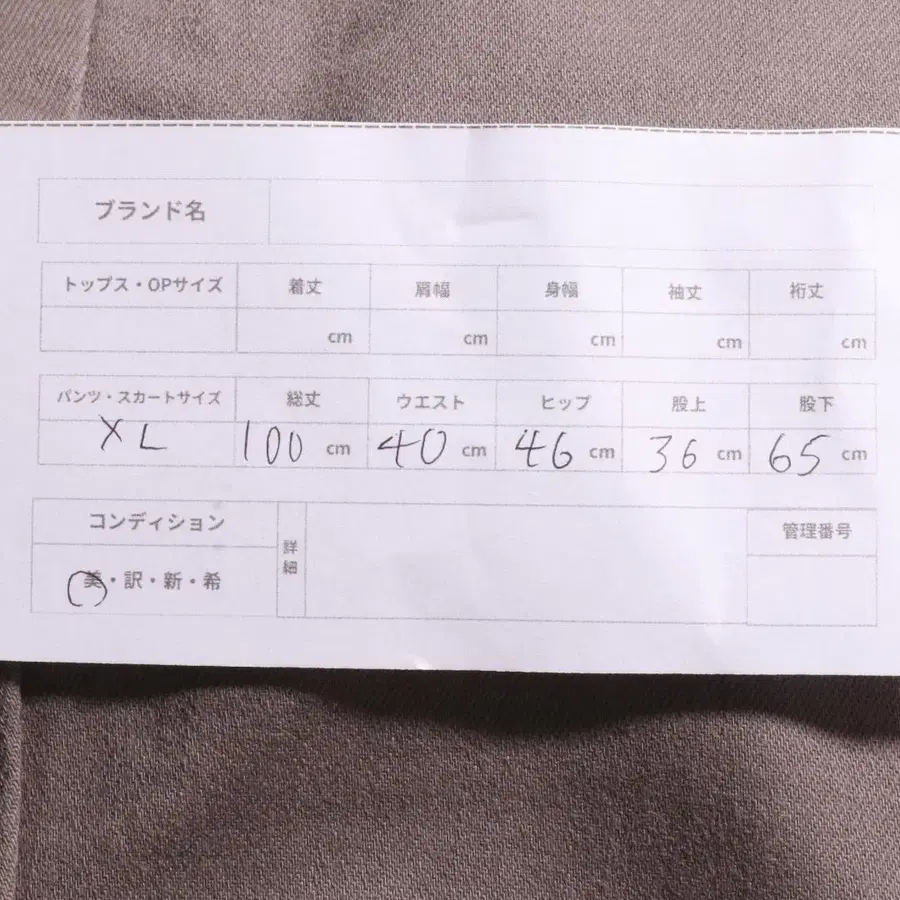 ブランド名
トップス・OPサイズ 着丈 肩幅 身幅 袖丈 裄丈
cm cm cm cm cm
パンツ・スカートサイズ 総丈 ウエスト ヒップ 股上 股下
XL 100 cm 40 cm 46 cm 36 cm 65 cm
コンディション 詳細 管理番号
美・訳・新・希